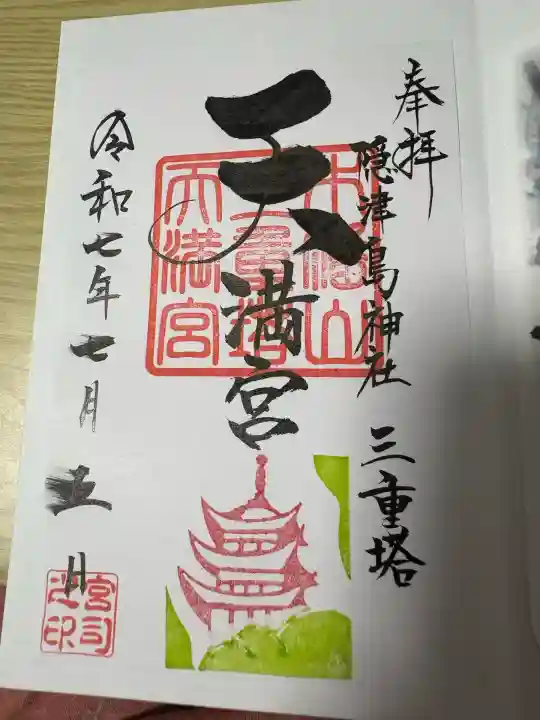 奉拝
隠津島神社 三重塔
天満宮
木幡山
三重塔
天満宮
令和七年七月五日
宮司
之印